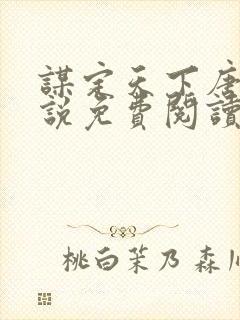 謀定天下唐
說免費閱讀
桃白茉乃 森川